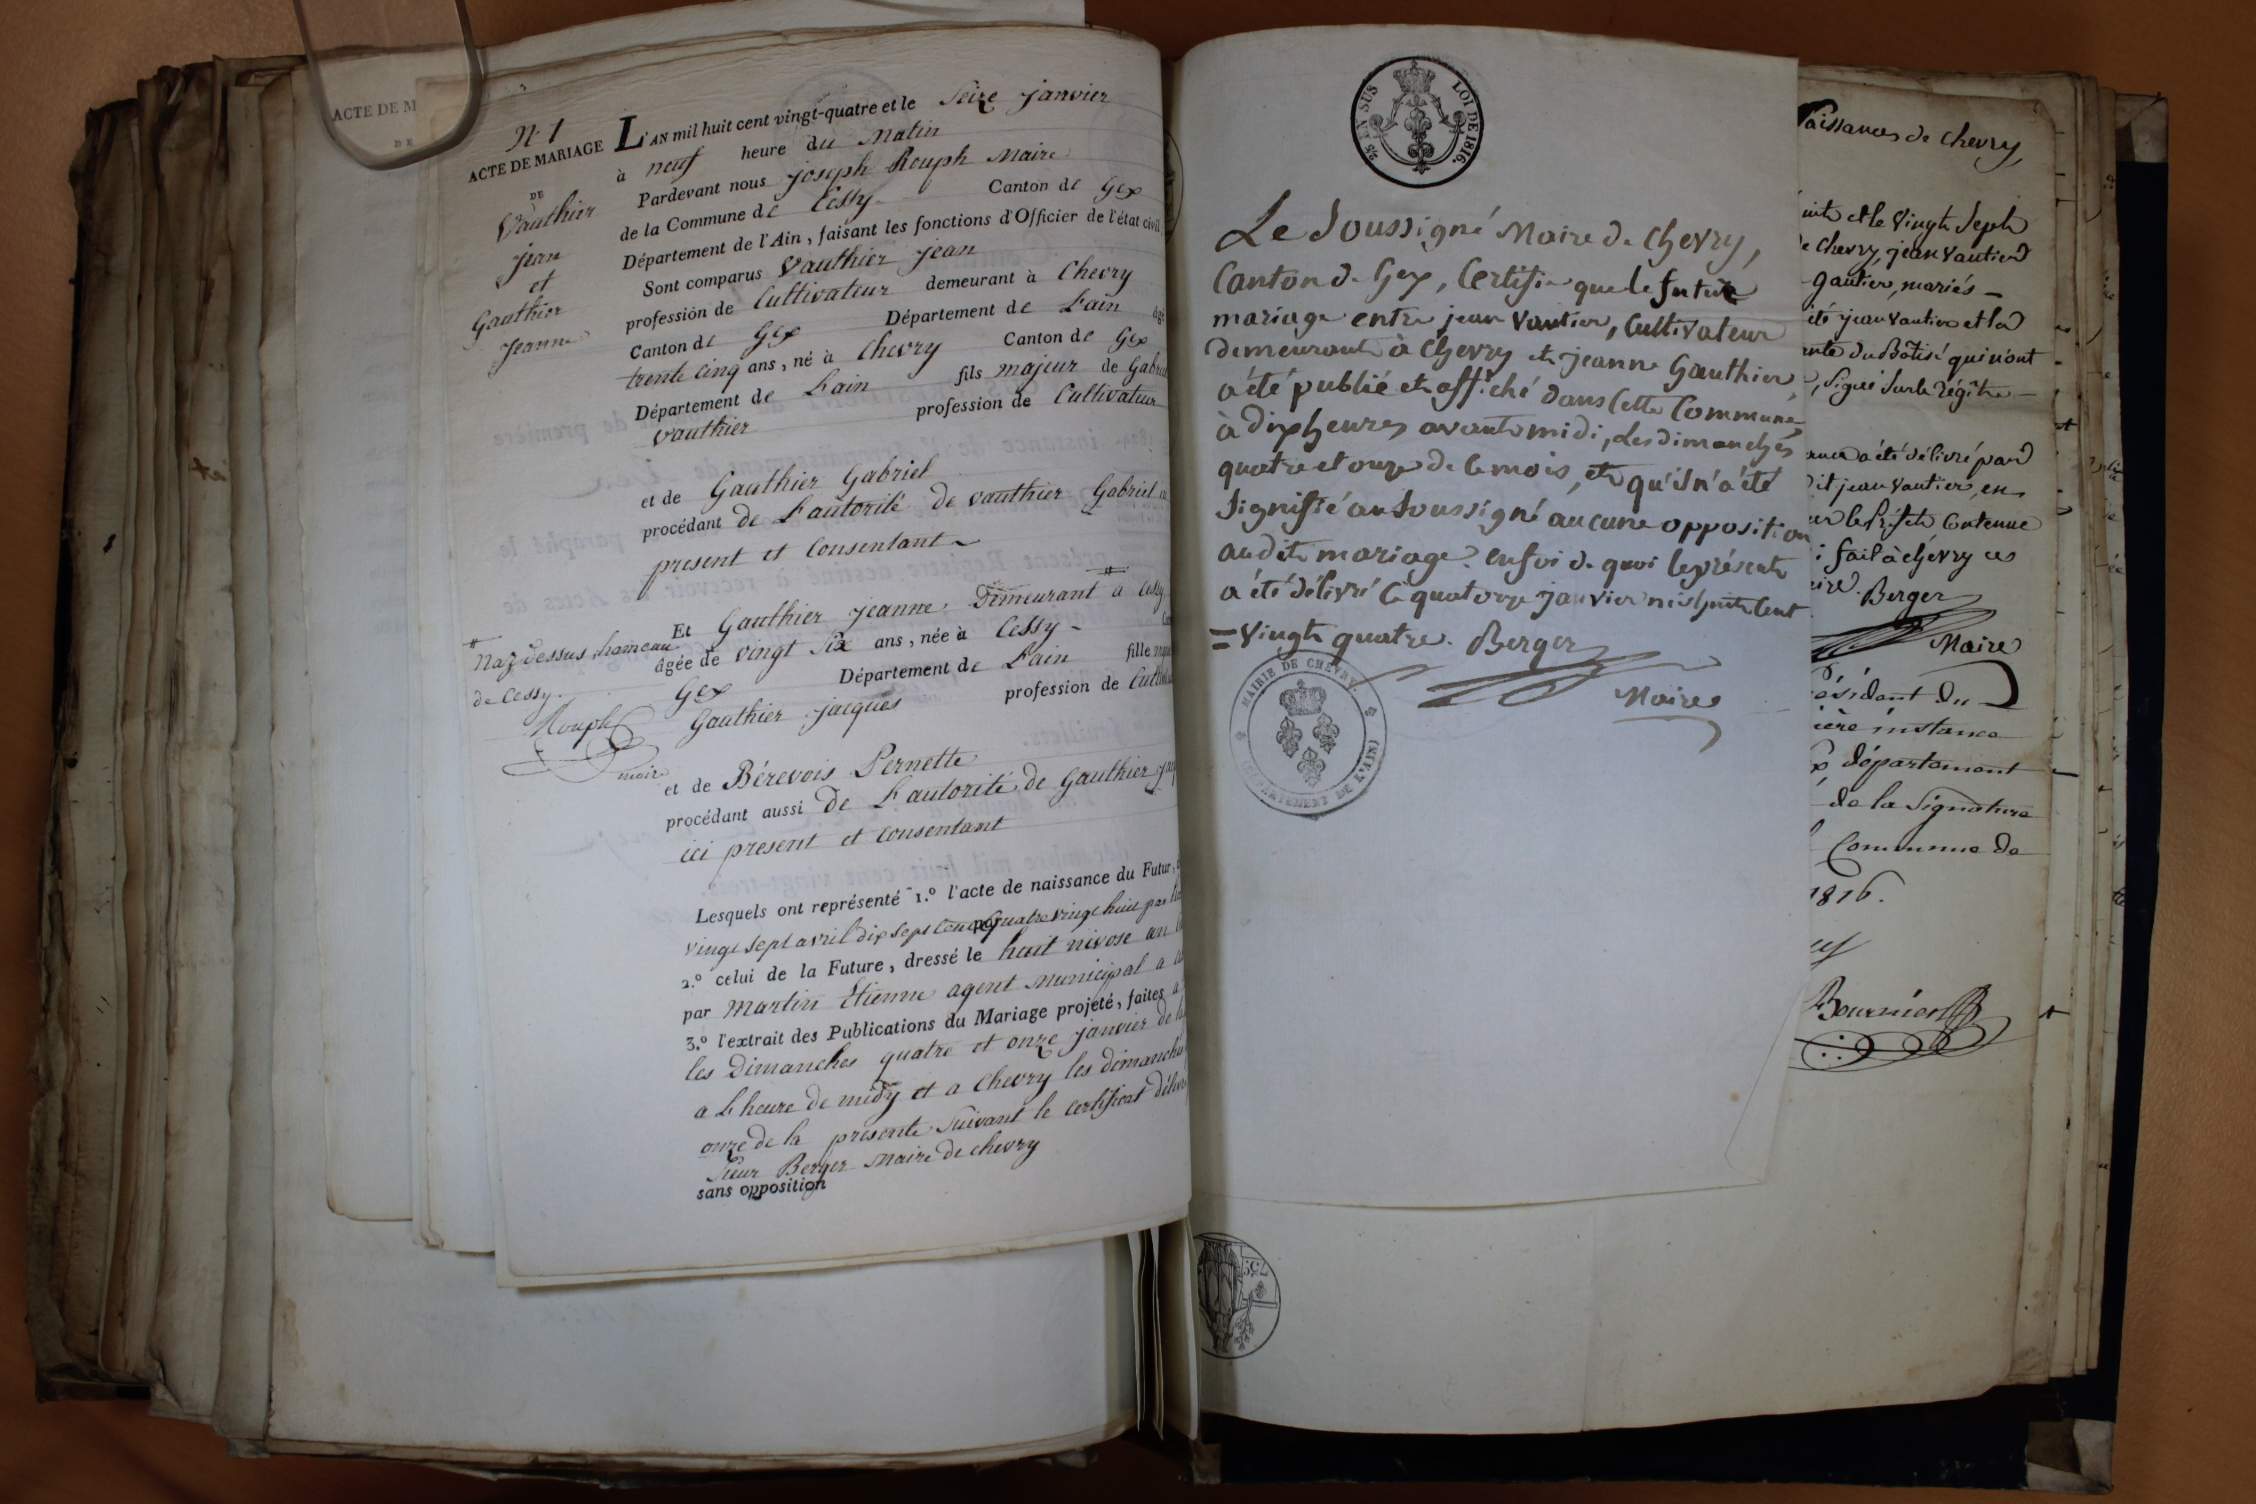 N.° 1
ACTE DE MARIAGE
DE
Vauthier
jean
et
Gauthier
Jeanne
L'AN mil huit cent vingt-quatre et le Seize janvier
à neuf heure du Matin
Pardevant nous joseph Rouph Maire
de la Commune de Cessy Canton de Gex
Département de l'Ain, faisant les fonctions d'Officier de l'état civil
Sont comparus Vauthier jean
profession de Cultivateur demeurant à Chevry
Canton de Gex Département de L'ain âgé
trente cinq ans, né à Chevry Canton de Gex
Département de L'ain fils majeur de Gabriel
vauthier profession de Cultivateur
et de Gauthier Gabriel
procédant de L'autorité de vauthier Gabriel
present et Consentant
Et Gauthier jeanne Demeurant a Cessy
# Naz dessus, hameau
de Cessy.
Rouph
maire
âgée de vingt Six ans, née à Cessy
Gex Département de L'ain fille
Gauthier jacques profession de
et de Bérevois Pernette
procédant aussi de L'autorité de Gauthier
ici present et Consentant
Lesquels ont représenté 1.° l'acte de naissance du Futur,
vingt sept avril dix sept cent quatre vingt huit par
2.° celui de la Future, dressé le huit nivose an
par Martin Etienne agent Municipal a
3.° l'extrait des Publications du Mariage projeté, faites a
les Dimanches quatre et onze janvier de
a L'heure de midy et a Chevry les dimanches
onze de la presente Suivant le Certificat
Sieur Berger Maire de chevry
sans opposition
ACTE DE M
DE
EN SUS LOI DE 1816.
Le Soussigné Maire de Chevry,
Canton de Gex, Certifie que le futur
mariage entre jean Vautier, Cultivateur
demeurant à Chevry et jeanne Gauthier,
a été publié et affiché dans Cette Commune,
à dix heures avant midi, les dimanches
quatre et onze de Ce mois, et qu'il n'a été
Signifié au Soussigné aucune opposition
audit mariage. en foi de quoi le présent
a été délivré Ce quatorze janvier mil huit Cent
= Vingt quatre. Berger
Maire
MAIRIE DE CHEVRY.
DÉPARTEMENT DE L'AIN
aissances de Chevry,
et le Vingt Sept
de Chevry, jean Vautier
Gautier, mariés
été jean Vautier et la
du Bâtisé qui n'ont
, Signé Sur le régître
a été délivré par
dit jean Vautier, en
Contenue
fait à Chévry ce
Berger
Maire
résident du
ière instance
département
de la Signature
Commune de
1816.
Bournier